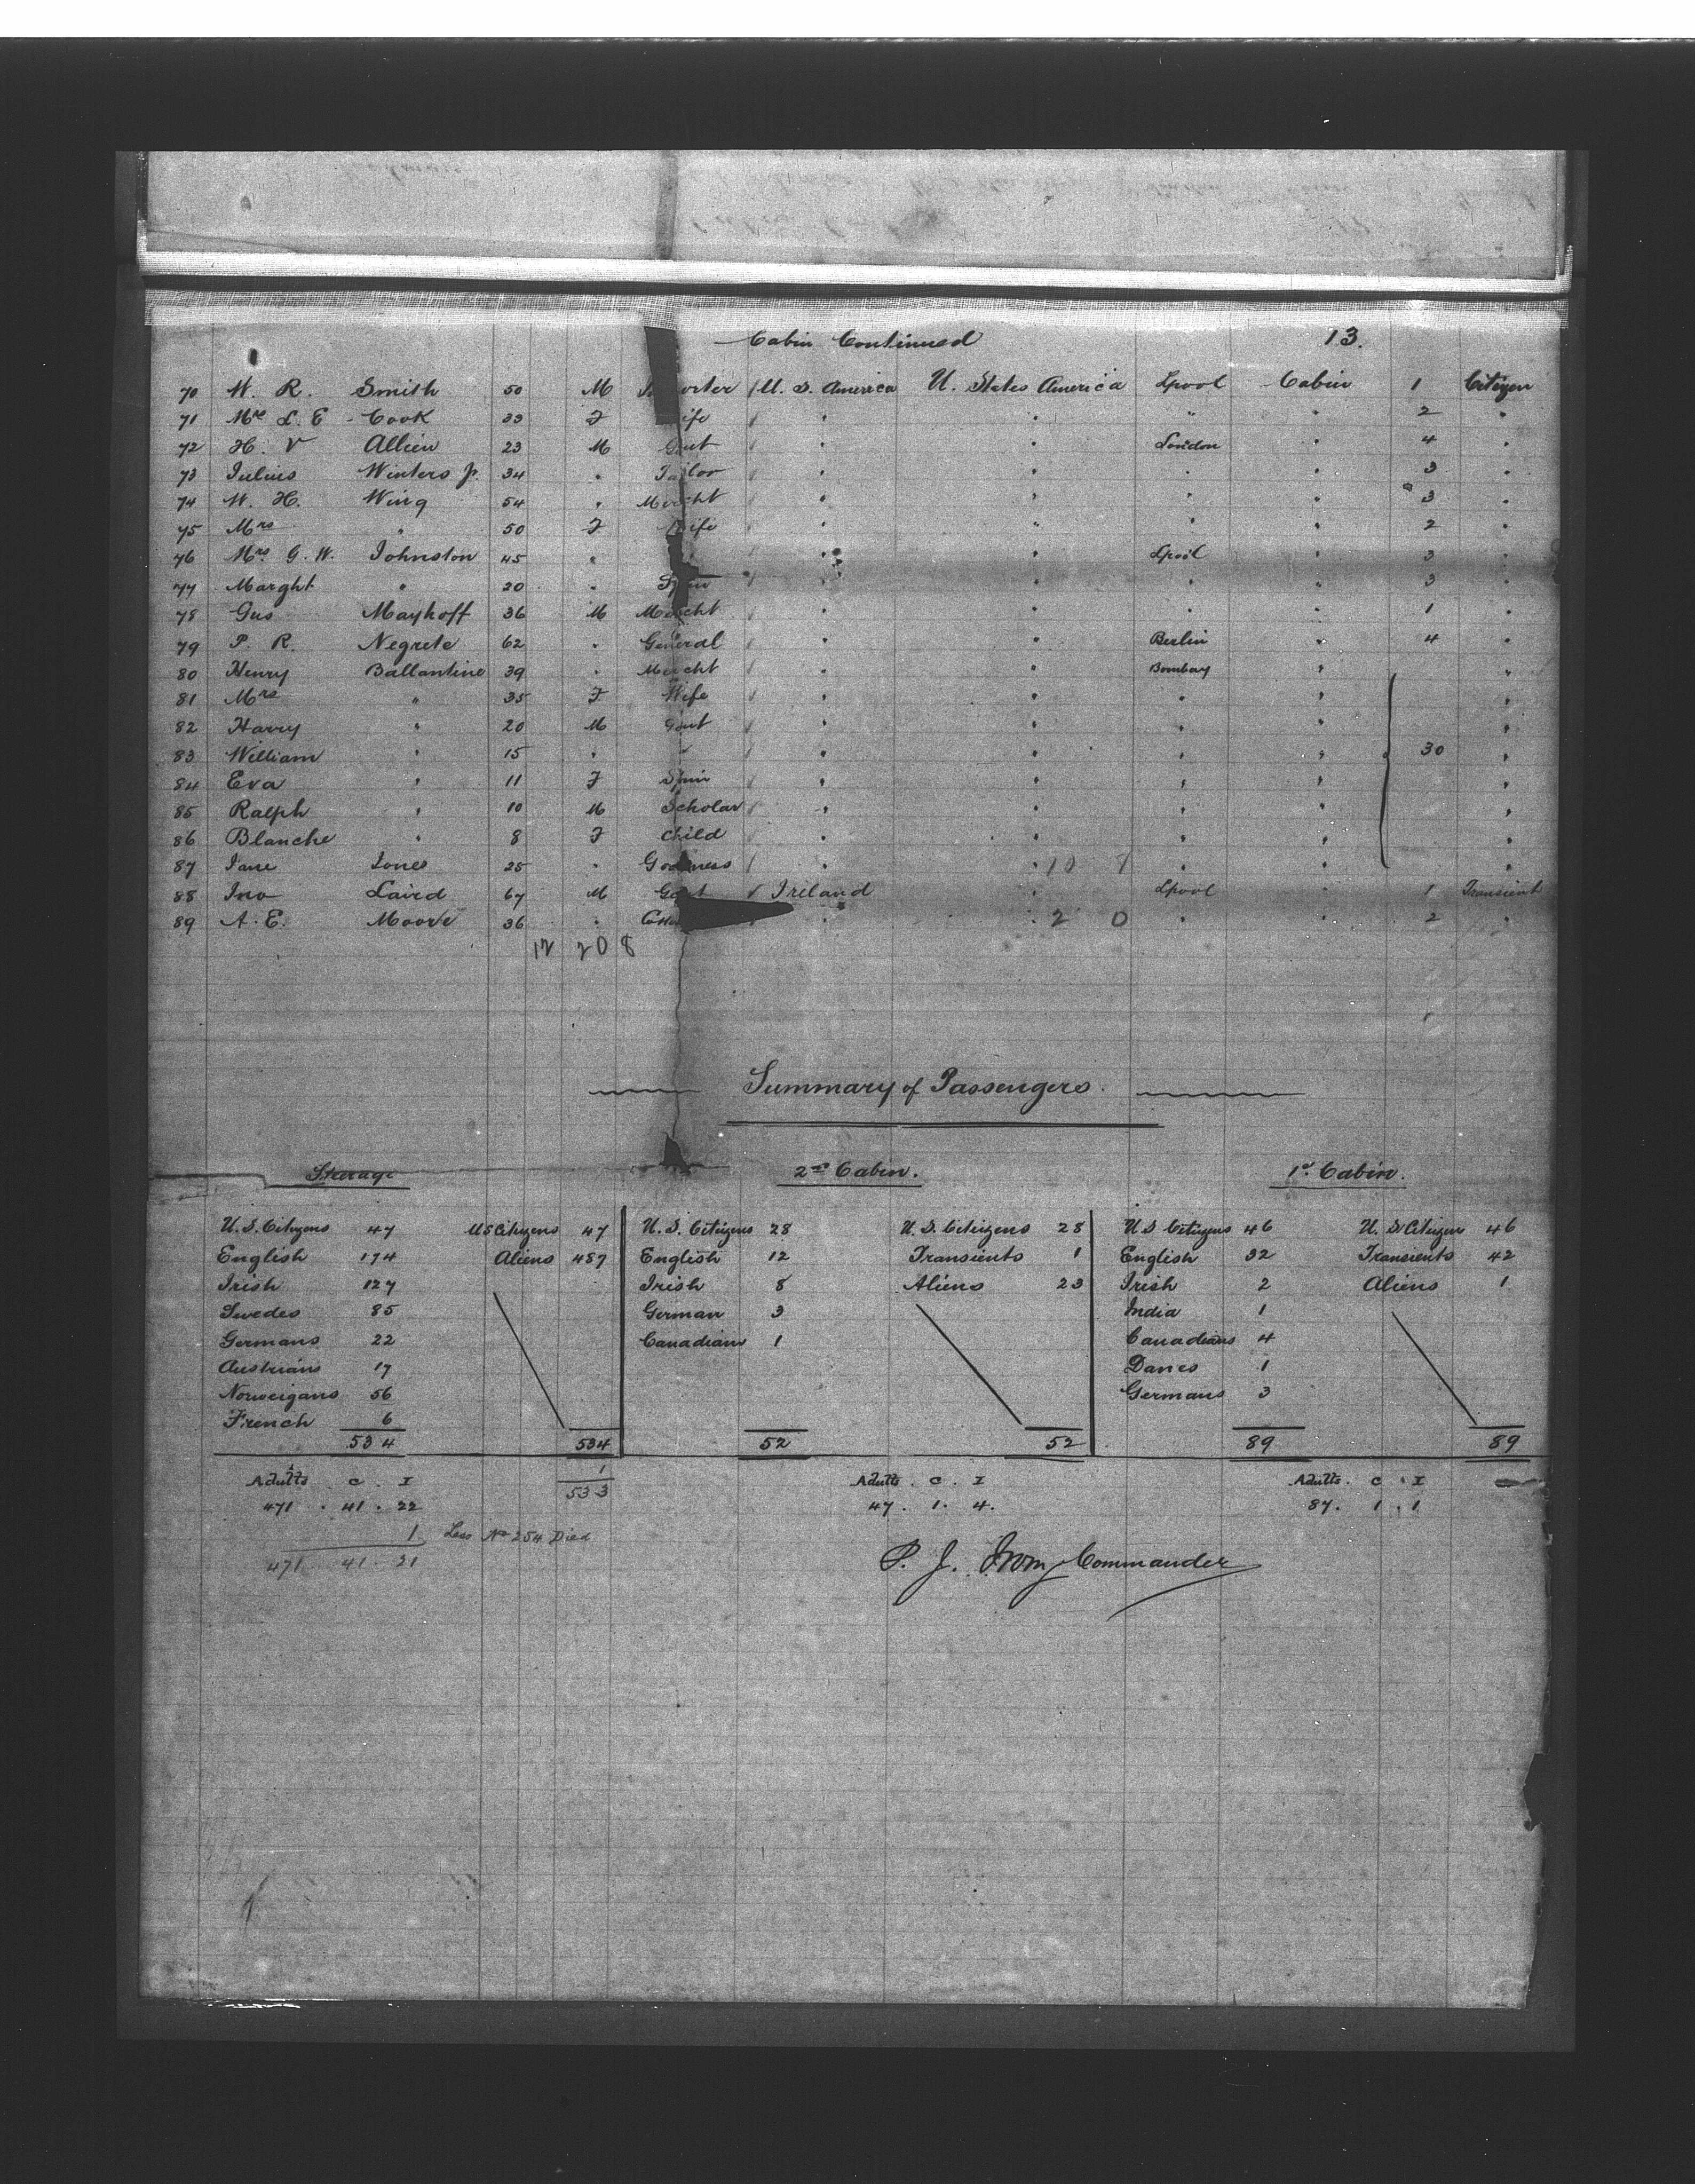 Cabin Continued 13.
70 W. R. Smith 50 M orter / U. S. America U. States America Lpool Cabin 1 Citizen
71 Mrs L. E Cook 33 F ife / " " " " 2 "
72 H. V Allien 23 M Gent / " " London " 4 "
73 Julius Winters Jr. 34 " Tailor / " " " " 3 "
74 W. H. Wing 54 " Mercht / " " " " 3 "
75 Mrs " 50 F Wife / " " " " 2 "
76 Mrs G. W. Johnston 45 " " " Lpool " 3 "
77 Marght " 20 " Spin / " " " " 3 "
78 Gus Mayhoff 36 M Mercht / " " " " 1 "
79 P. R. Negrete 62 " General / " " Berlin " 4 "
80 Henry Ballantine 39 " Mercht / " " Bombay " "
81 Mrs " 35 F Wife / " " " " "
82 Harry " 20 M Gent / " " " " "
83 William " 15 " " / " " " " 30 "
84 Eva " 11 F Spin / " " " " "
85 Ralph " 10 M Scholar / " " " " "
86 Blanche " 8 F Child / " " " " "
87 Jane Jones 25 " Go ness / " " 10 8 " " "
88 Jno Laird 67 M Gent ✓ Ireland " Lpool " 1 Transient
89 A. E. Moore 36 " " " 2 0 " " 2 "
12 20 8
Summary of Passengers.
Steerage 2nd Cabin. 1st Cabin.
U. S. Citizens 47 US Citizens 47 U. S. Citizens 28 U. S. Citizens 28 U S Citizens 46 U. S Citizen 46
English 174 Aliens 487 English 12 Transients 1 English 32 Transients 42
Irish 127 Irish 8 Aliens 23 Irish 2 Aliens 1
Swedes 85 German 3 India 1
Germans 22 Canadians 1 Canadians 4
Austrians 17 Danes 1
Norweigans 56 Germans 3
French 6
534 534 52 52 89 89
Adults . C . I 1 Adults . C . I Adults . C . I
471 . 41 . 22 533 47 . 1 . 4. 87 . 1 . 1
1 Less No 254 Died
471 . 41 . 21
P. J. Irving Commander